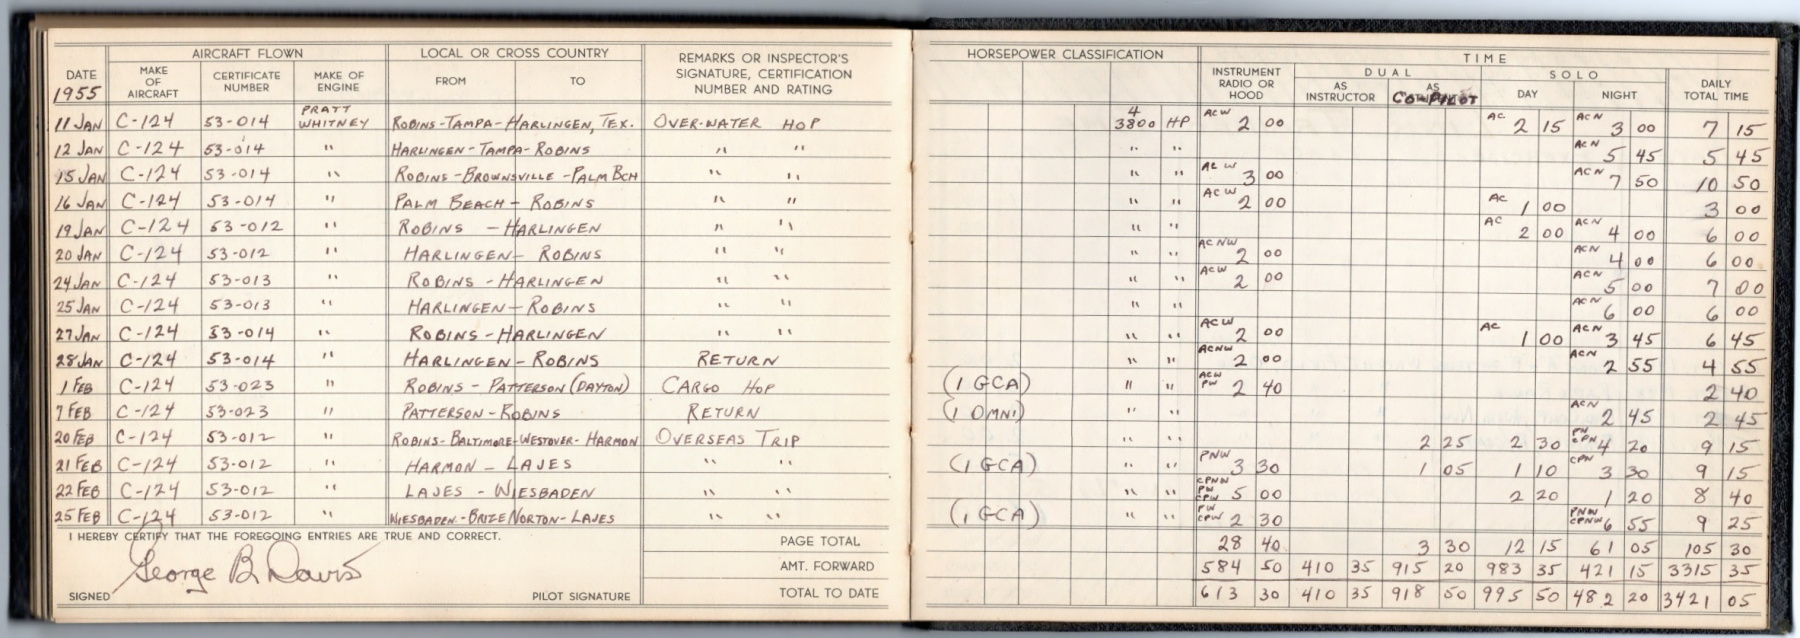 AIRCRAFT FLOWN LOCAL OR CROSS COUNTRY REMARKS OR INSPECTOR'S SIGNATURE, CERTIFICATION NUMBER AND RATING HORSEPOWER CLASSIFICATION TIME
DATE 1955 MAKE OF AIRCRAFT CERTIFICATE NUMBER MAKE OF ENGINE FROM TO INSTRUMENT RADIO OR HOOD DUAL AS INSTRUCTOR AS CO-PILOT SOLO DAY NIGHT DAILY TOTAL TIME
11 JAN C-124 53-014 PRATT WHITNEY ROBINS-TAMPA-HARLINGEN, TEX. OVER-WATER HOP 4 3800 HP ACW 2 00 AC 2 15 ACN 3 00 7 15
12 JAN C-124 53-014 " HARLINGEN-TAMPA-ROBINS " " " " ACN 5 45 5 45
15 JAN C-124 53-014 " ROBINS-BROWNSVILLE-PALM BCH " " " " ACW 3 00 ACN 7 50 10 50
16 JAN C-124 53-014 " PALM BEACH-ROBINS " " " " ACW 2 00 AC 1 00 3 00
19 JAN C-124 53-012 " ROBINS-HARLINGEN " " " " AC 2 00 ACN 4 00 6 00
20 JAN C-124 53-012 " HARLINGEN-ROBINS " " " " ACNW 2 00 ACN 4 00 6 00
24 JAN C-124 53-013 " ROBINS-HARLINGEN " " " " ACW 2 00 ACN 5 00 7 00
25 JAN C-124 53-013 " HARLINGEN-ROBINS " " " " ACN 6 00 6 00
27 JAN C-124 53-014 " ROBINS-HARLINGEN " " " " ACW 2 00 AC 1 00 ACN 3 45 6 45
28 JAN C-124 53-014 " HARLINGEN-ROBINS RETURN " " ACNW 2 00 ACN 2 55 4 55
1 FEB C-124 53-023 " ROBINS-PATTERSON (DAYTON) CARGO HOP (1 GCA) " " ACW PW 2 40 2 40
7 FEB C-124 53-023 " PATTERSON-ROBINS RETURN (1 OMNI) " " ACN 2 45 2 45
20 FEB C-124 53-012 " ROBINS-BALTIMORE-WESTOVER-HARMON OVERSEAS TRIP " " 2 25 2 30 PN CPN 4 20 9 15
21 FEB C-124 53-012 " HARMON-LAJES " " (1 GCA) " " PNW 3 30 1 05 1 10 CPN 3 30 9 15
22 FEB C-124 53-012 " LAJES-WIESBADEN " " " " CPNW PW CPW 5 00 2 20 1 20 8 40
25 FEB C-124 53-012 " WIESBADEN-BRIZE NORTON-LAJES " " (1 GCA) " " PW CPW 2 30 PNW CPNW 6 55 9 25
I HEREBY CERTIFY THAT THE FOREGOING ENTRIES ARE TRUE AND CORRECT. PAGE TOTAL 28 40 3 30 12 15 61 05 105 30
George B Davis AMT. FORWARD 584 50 410 35 915 20 983 35 421 15 3315 35
SIGNED PILOT SIGNATURE TOTAL TO DATE 613 30 410 35 918 50 995 50 482 20 3421 05